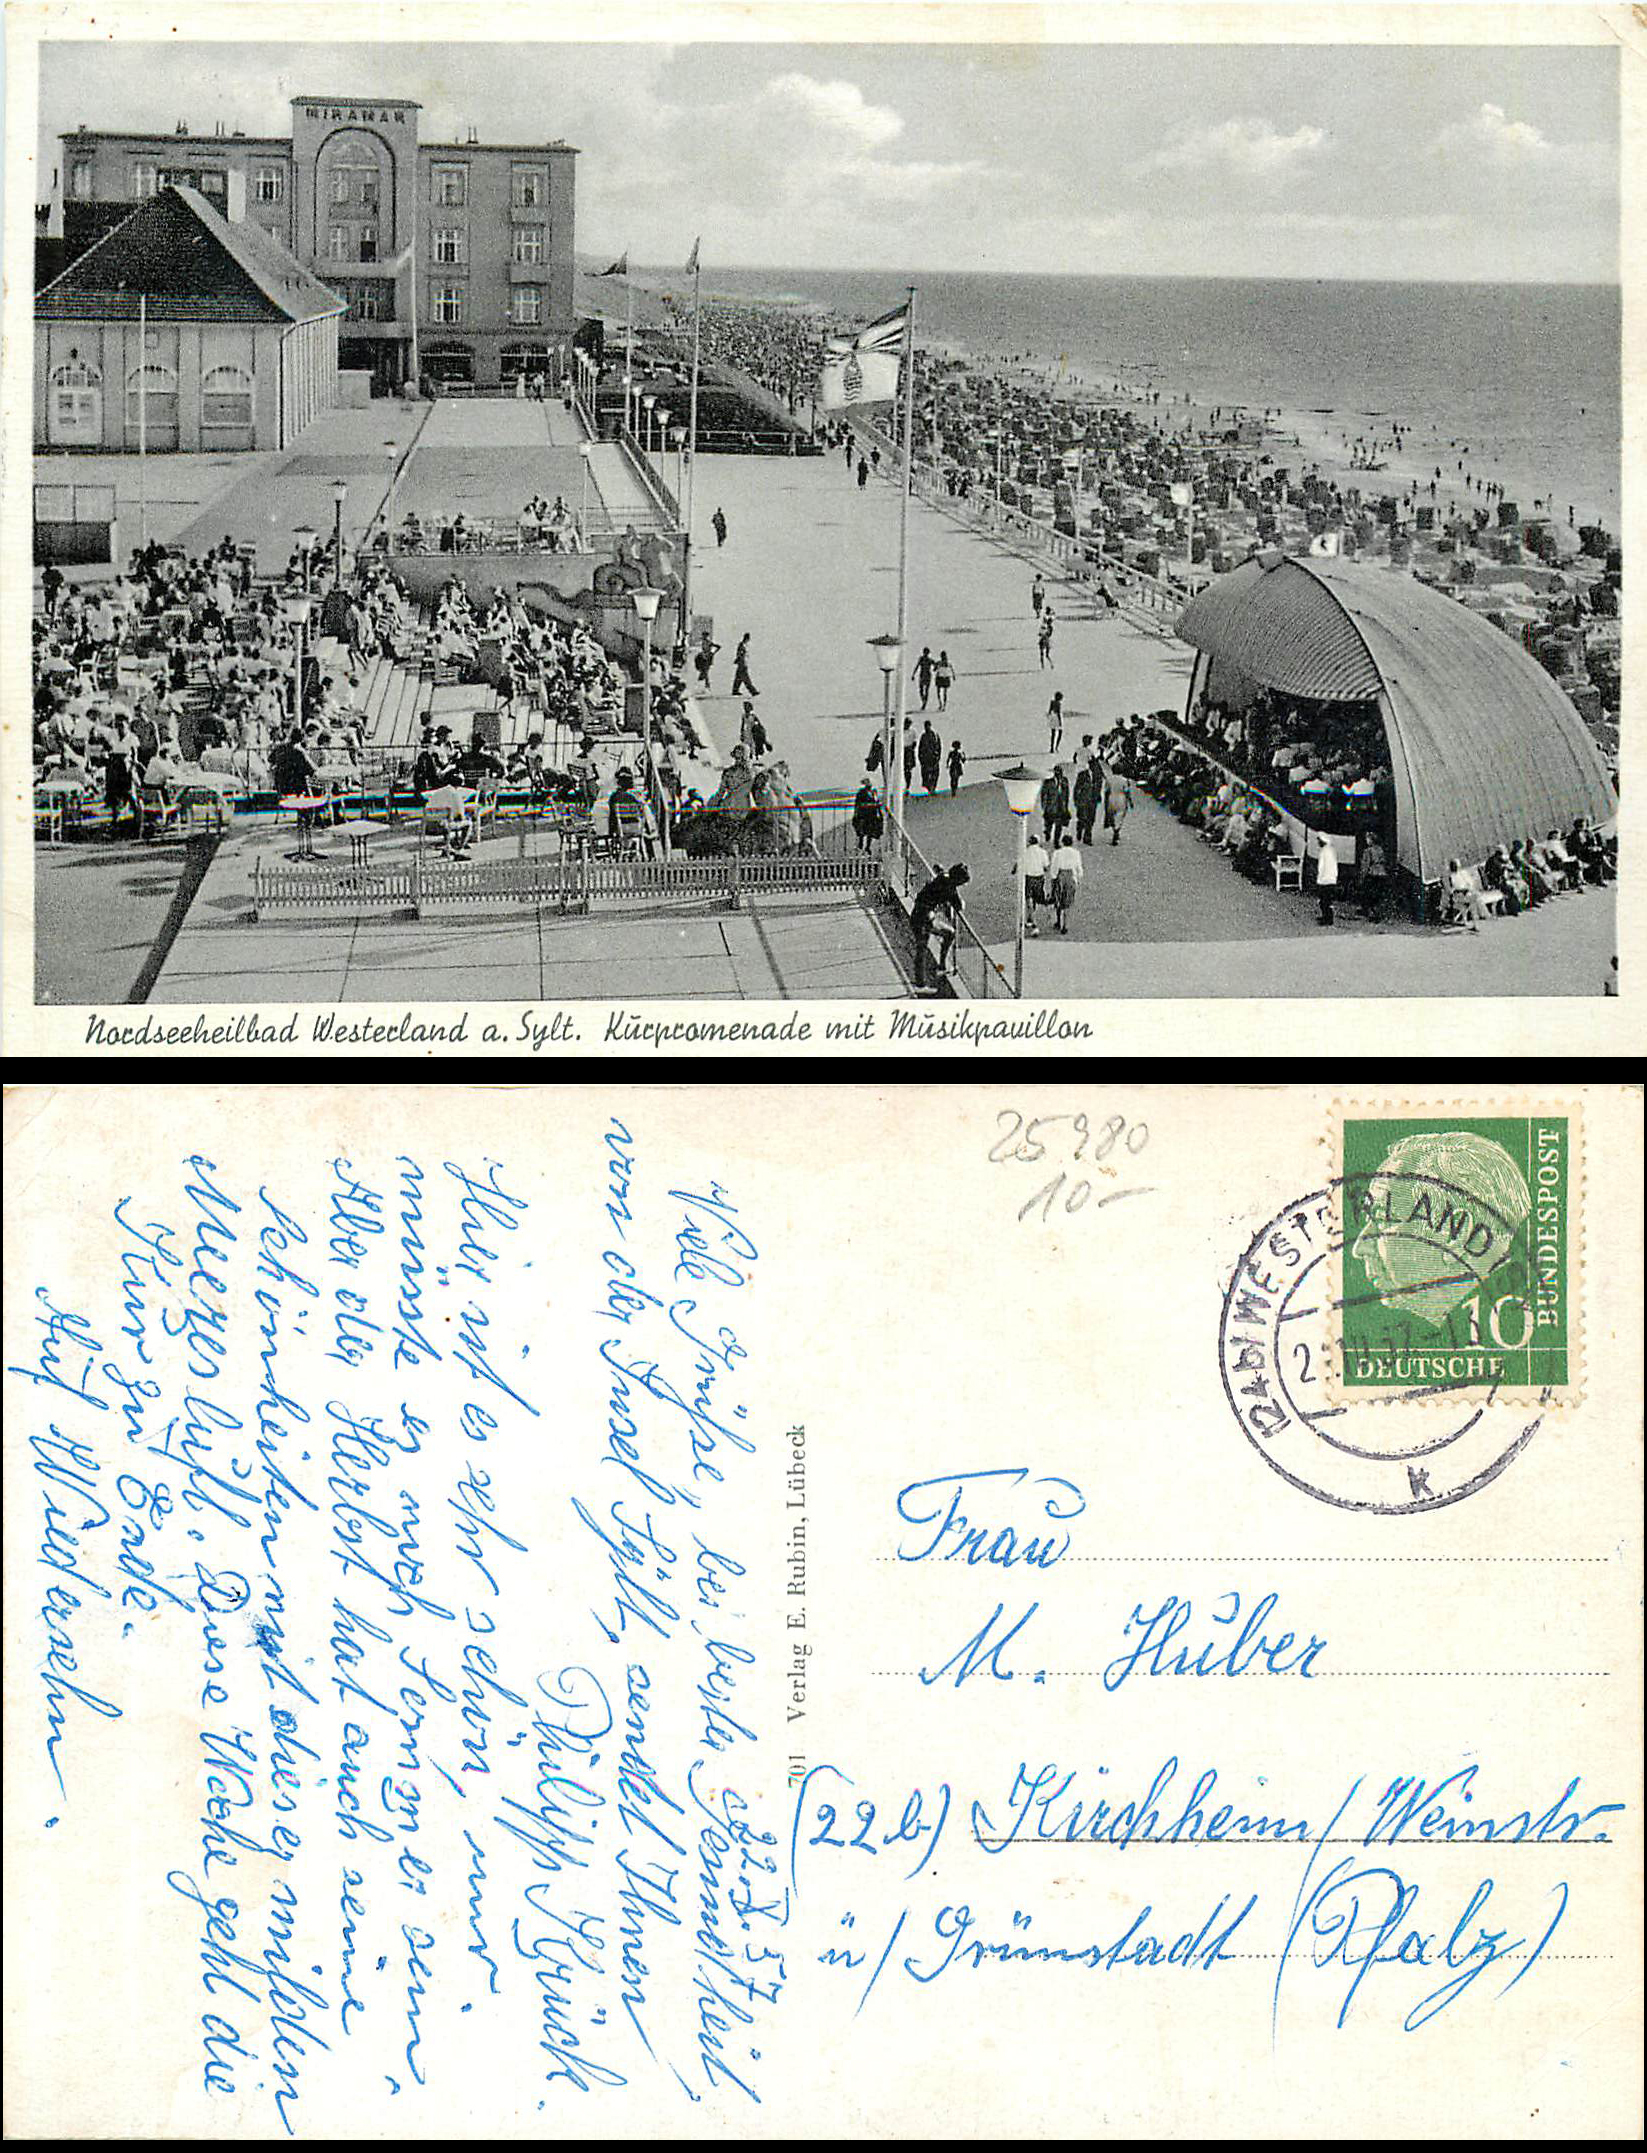 MIRAMAR
Nordseeheilbad Westerland a. Sylt. Kurpromenade mit Musikpavillon
25980
10-
BUNDESPOST
10
DEUTSCHE
(24b) WESTERLAND
k
22. 57
Viele Grüße, bei bester Gesundheit,
von der Insel Sylt, sendet Ihnen
Philipp Krück.
Hier ist es sehr schön, nur
müsste es noch Sommer sein,
Aber der Herbst hat auch seine
Schönheiten mit dieser milden
Meeresluft. Diese Woche geht die
Kur zu Ende.
Auf Wiedersehn.
701 Verlag E. Rubin, Lübeck
Frau
M. Huber
(22b) Kirchheim / Weinstr.
ü/ Grünstadt (Pfalz)